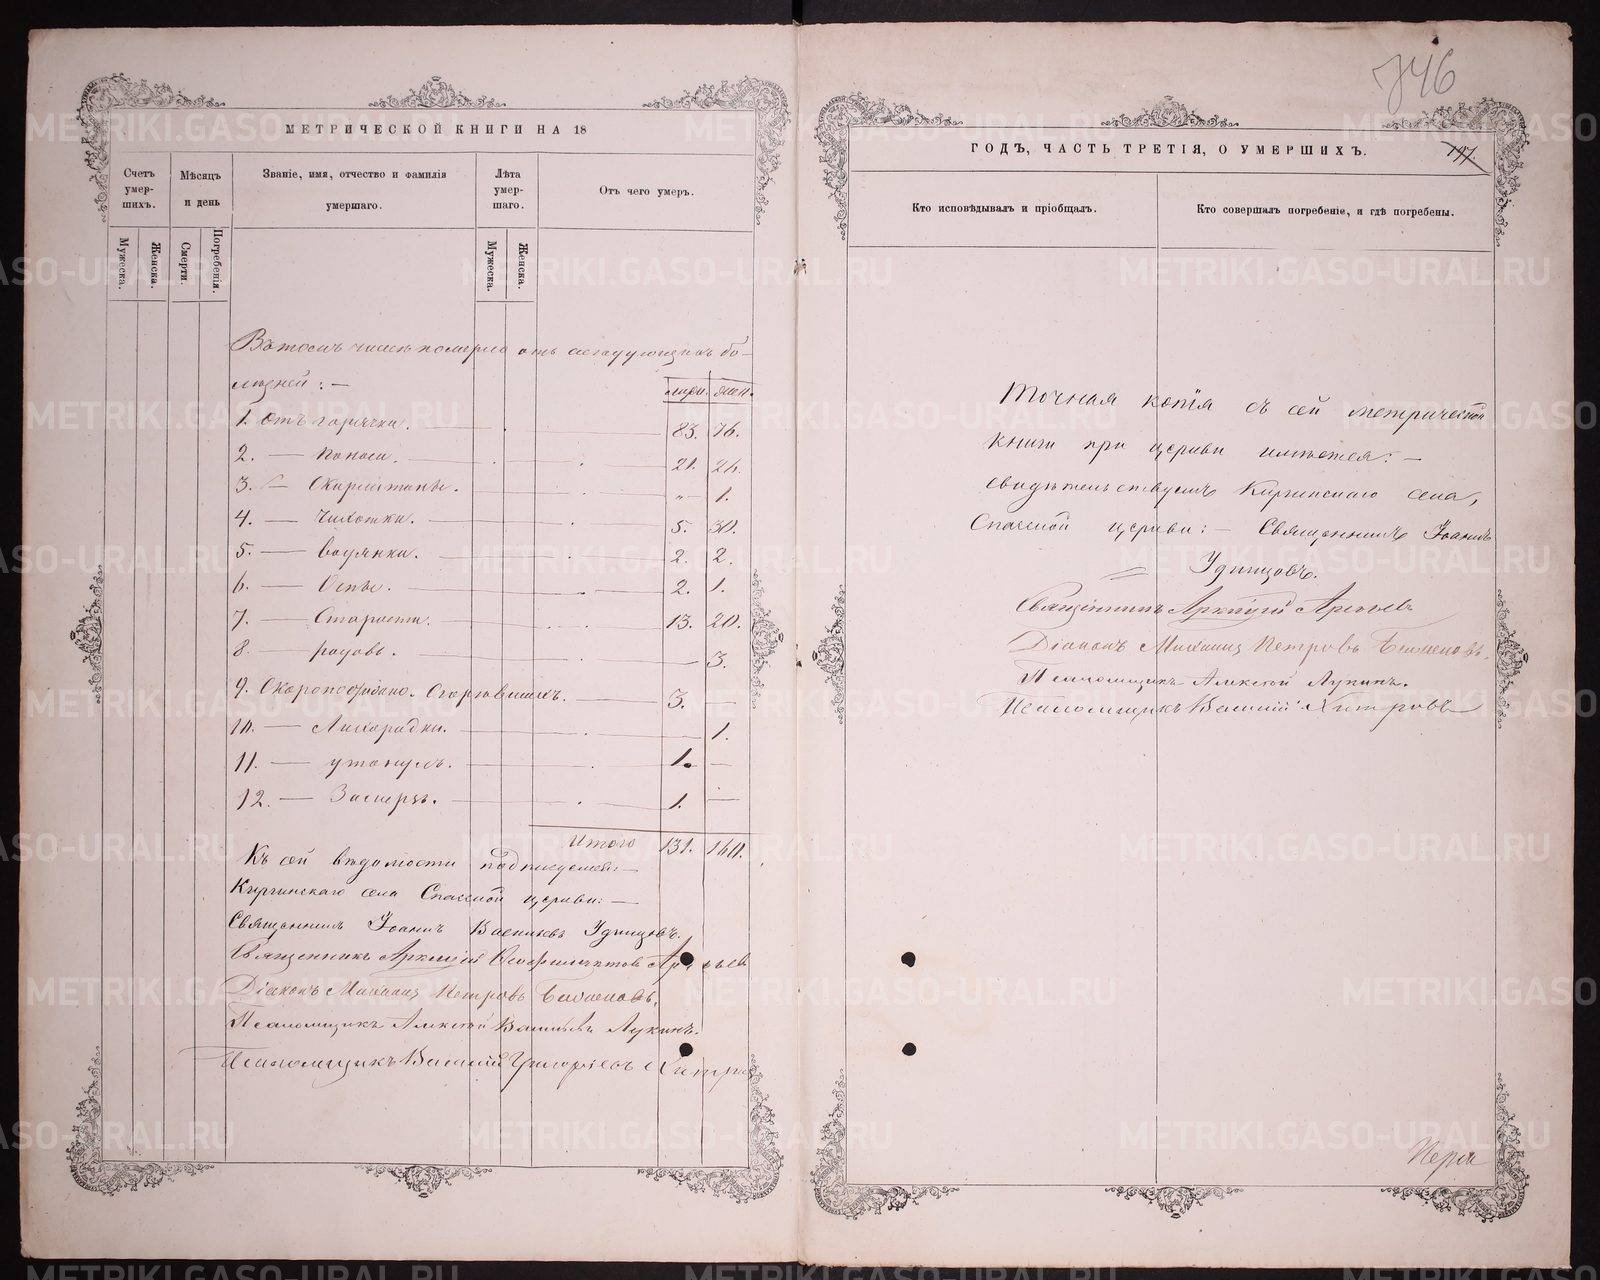 746
МЕТРИЧЕСКОЙ КНИГИ НА 18
Счетъ умер-
шихъ.
Мѣсяцъ
и день
Званіе, имя, отчество и фамилія
умершаго.
Лѣта
умер-
шаго.
Отъ чего умеръ.
Мужеска.
Женска.
Смерти.
Погребенія.
Мужеска.
Женска.
Въ томъ числѣ померло отъ слѣдующихъ бо-
лѣзней: —
муж. жен.
1. Отъ горячки. 83. 76.
2. — Поноса. 21. 26.
3. — Скарлатины. „ — 1.
4. — Чихотки. 5. 30.
5. — Водянки. 2. 2.
6. — Оспы. 2. 1.
7. — Старости. 13. 20.
8. — родовъ. — 3.
9. Скоропостижно. 3. —
10. — Лихорадки. — 1.
11. — утонулъ. 1. —
12. — Замерзъ. 1. —
Итого 131. 160.
Къ сей вѣдомости подписуемся: —
Киргинскаго села Спасской церкви: —
Священникъ Іоаннъ Васильевъ Удинцовъ.
Священникъ Аркадій
Діаконъ Михаилъ Петровъ
Псаломщикъ Алексѣй Васильевъ Лукинъ.
Псаломщикъ Василій Григорьевъ Хитровъ
ГОДЪ, ЧАСТЬ ТРЕТІЯ, О УМЕРШИХЪ.
197.
Кто исповѣдывалъ и пріобщалъ.
Кто совершалъ погребеніе, и гдѣ погребены.
Точная копія съ сей метрической
книги при церкви имѣется: —
свидѣтельствуемъ Киргинскаго села,
Спасской церкви: — Священникъ Іоаннъ
Удинцовъ.
Священникъ Аркадій
Діаконъ Михаилъ Петровъ
Псаломщикъ Алексѣй Лукинъ.
Псаломщикъ Василій Хитровъ
METRIKI.GASO-URAL.RU